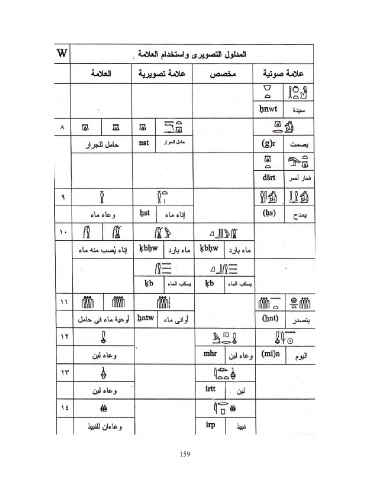 W المدلول التصويرى واستخدام العلامة
العلامة علامة تصويرية مخصص علامة صوتية
ḥnwt سيدة
٨
حامل للجرار nst حامل الجرار (g)r يصمت
dšrt فخار أحمر
٩
وعاء ماء ḥst إناء ماء (ḥs) يمدح
١٠
إناء يُصب منه ماء ḳbḥw ماء بارد ḳbḥw ماء بارد
ḳb يسكب الماء ḳb يسكب الماء
١١
أوعية ماء فى حامل ḫntw أوانى ماء (ḫnt) يتصدر
١٢
وعاء لبن mhr وعاء لبن (mi)n اليوم
٢٣
وعاء لبن irtt لبن
١٤
وعاءان للنبيذ irp نبيذ
159